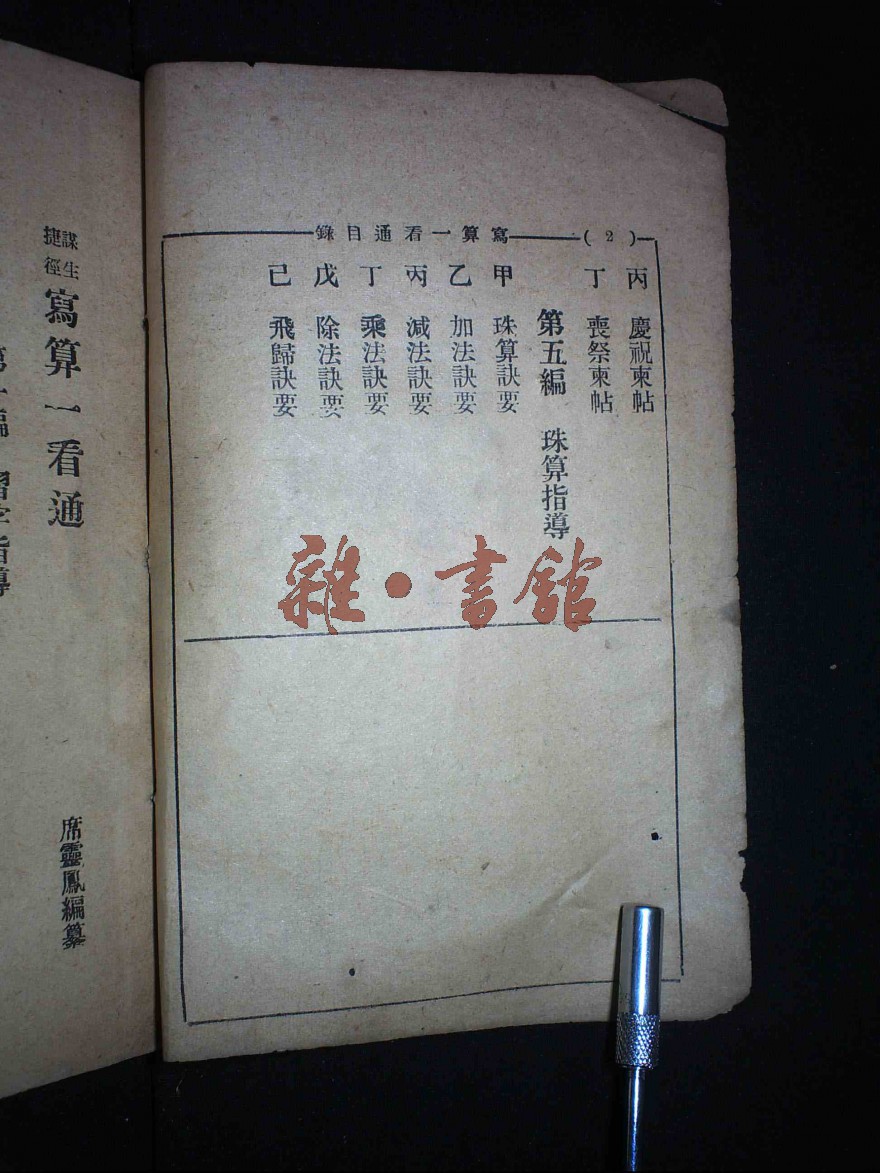 寫算一看通目錄 (2)
丙 慶祝柬帖
丁 喪祭柬帖
第五編 珠算指導
甲 珠算訣要
乙 加法訣要
丙 減法訣要
丁 乘法訣要
戊 除法訣要
己 飛歸訣要
雜·書館
謀生
捷徑
寫算一看通
席靈鳳編纂